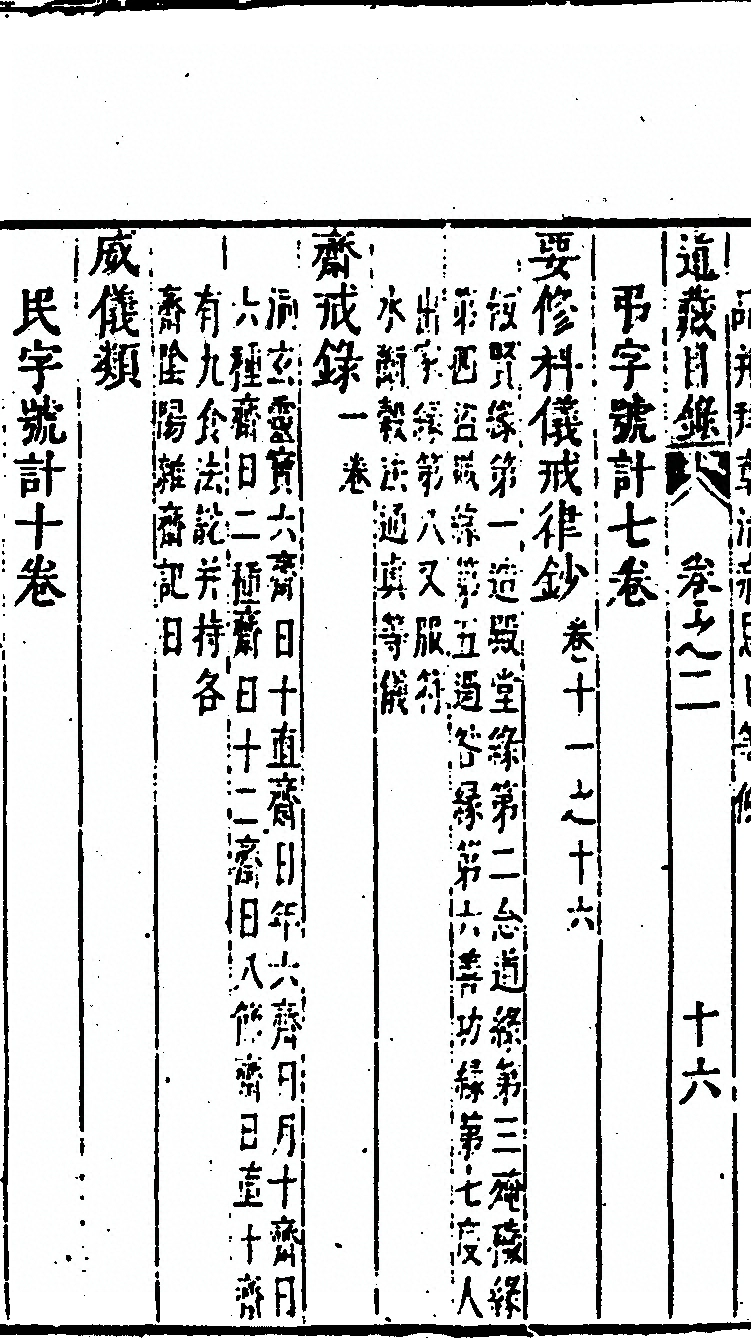 道藏目錄 卷之二 十六
弔字號計七卷
要修科儀戒律鈔 卷十一之十六
投賢緣第一造殿堂緣第二怠道緣第三殗穢緣
第四盜賊緣第五過咎緣第六善功緣第七度人
出家緣第八又服符
水斷穀法通真等儀
齋戒錄 一卷
洞玄靈寶六齋日十直齋日年六齋月月十齋日
六種齋日二種齋日十二齋日八節齋日直十齋
有九食法說并持各
齋陰陽雜齋記日
威儀類
民字號計十卷